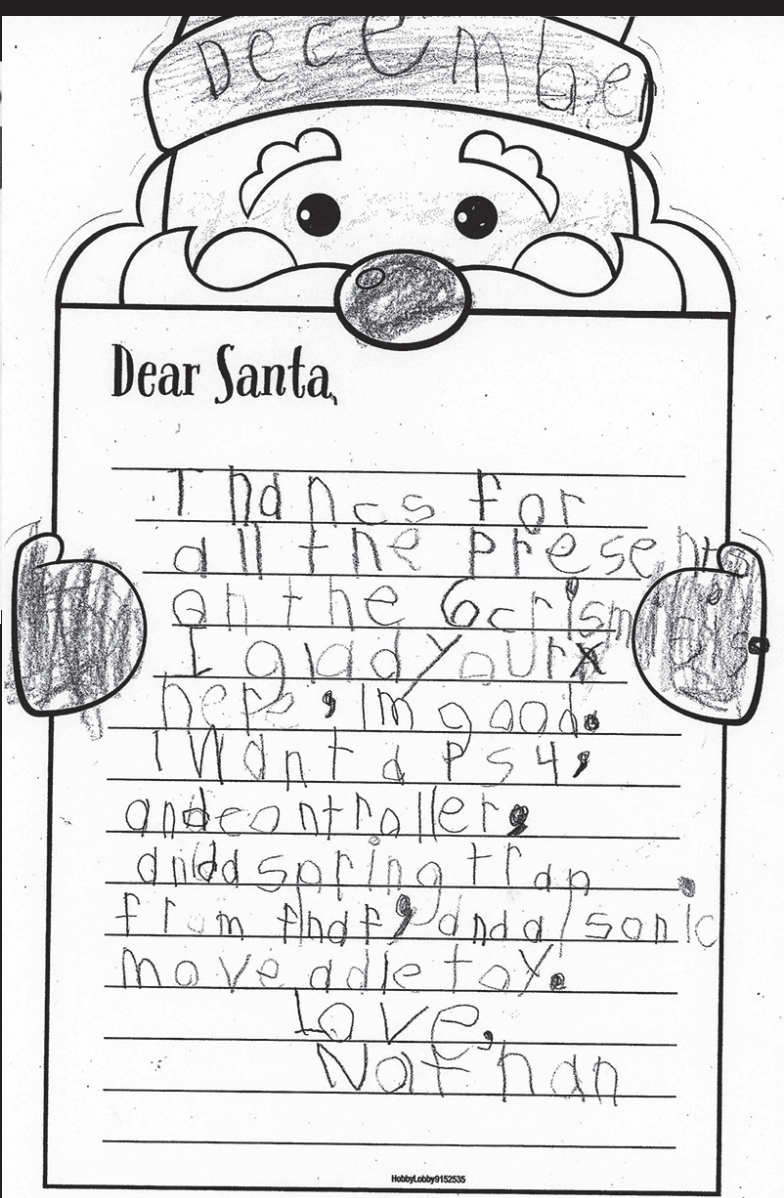 December
Dear Santa,
Thancs for
all the presents
on the 6crismas's
I glad your
here, im good.
I want a PS4,
andcontroller,
andda springtrap.
from fnaf, anda sonic
moveadle toy.
Love,
Nathan
HobbyLobby9152535